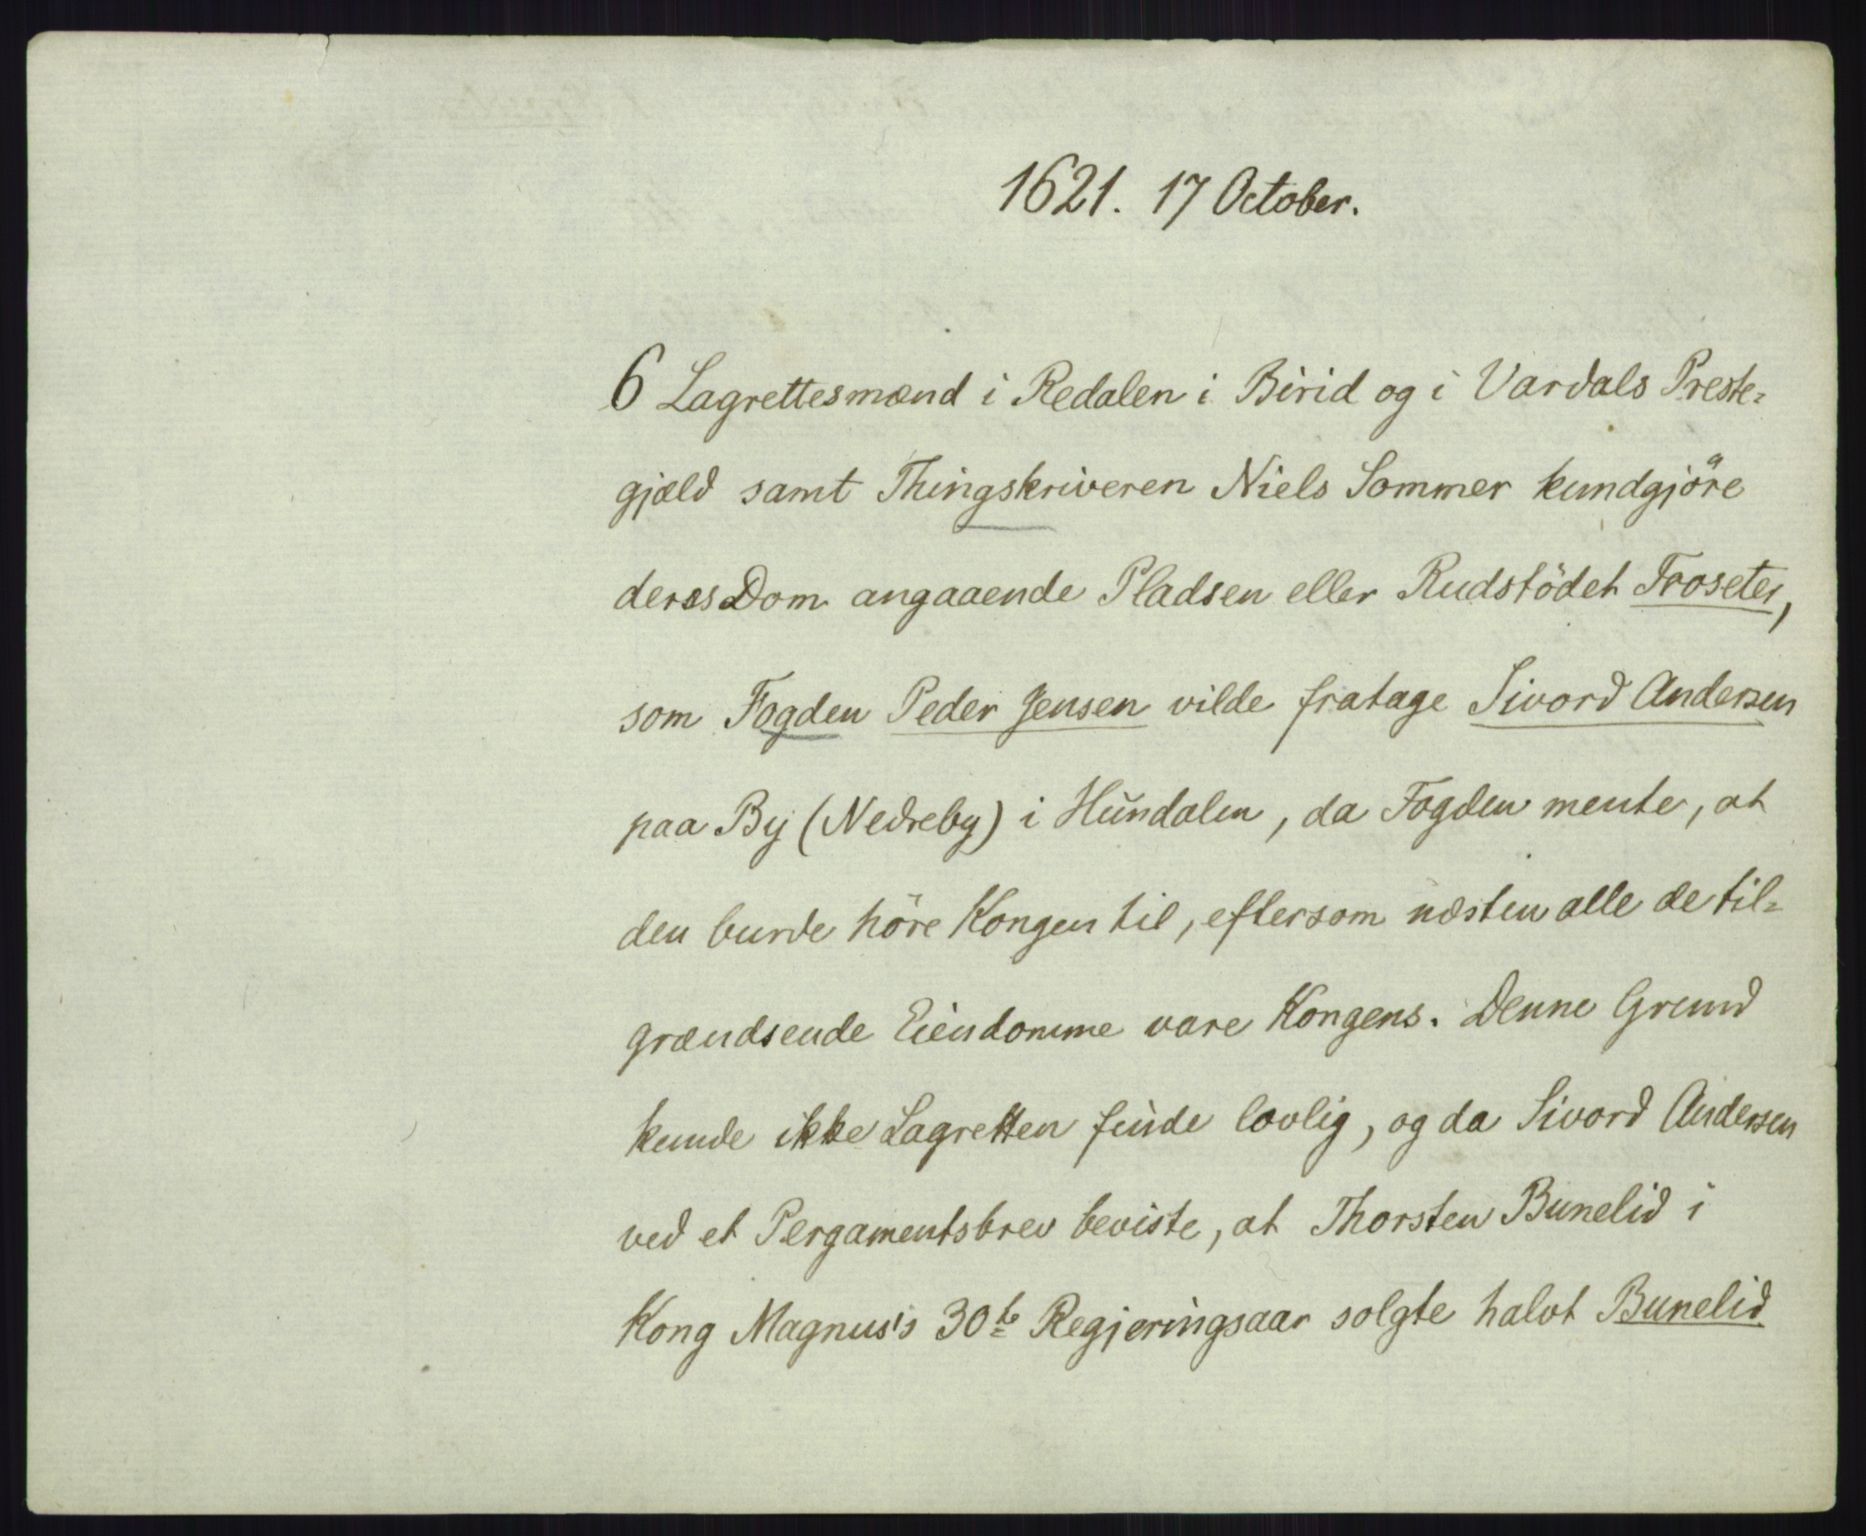 1621. 17 October.
6 Lagrettesmænd i Redalen i Birid og i Vardals Preste=
gjæld samt Thingskriveren Niels Sommer kundgjöre
deres Dom angaaende Pladsen eller Rudstödet Froseter,
som Fogden Peder Jensen vilde fratage Sivord Andersen
paa By (Nedreby) i Hŭndalen, da Fogden mente, at
den burde höre Kongen til, eftersom næsten alle de til=
grændsende Eiendomme vare Kongens. Denne Grund
kunde ikke Lagretten finde lovlig, og da Sivord Andersen
ved et Pergamentsbrev beviste, at Thorsten Bunelid i
Kong Magnus's 30te Regjeringsaar solgte halvt Bunelid